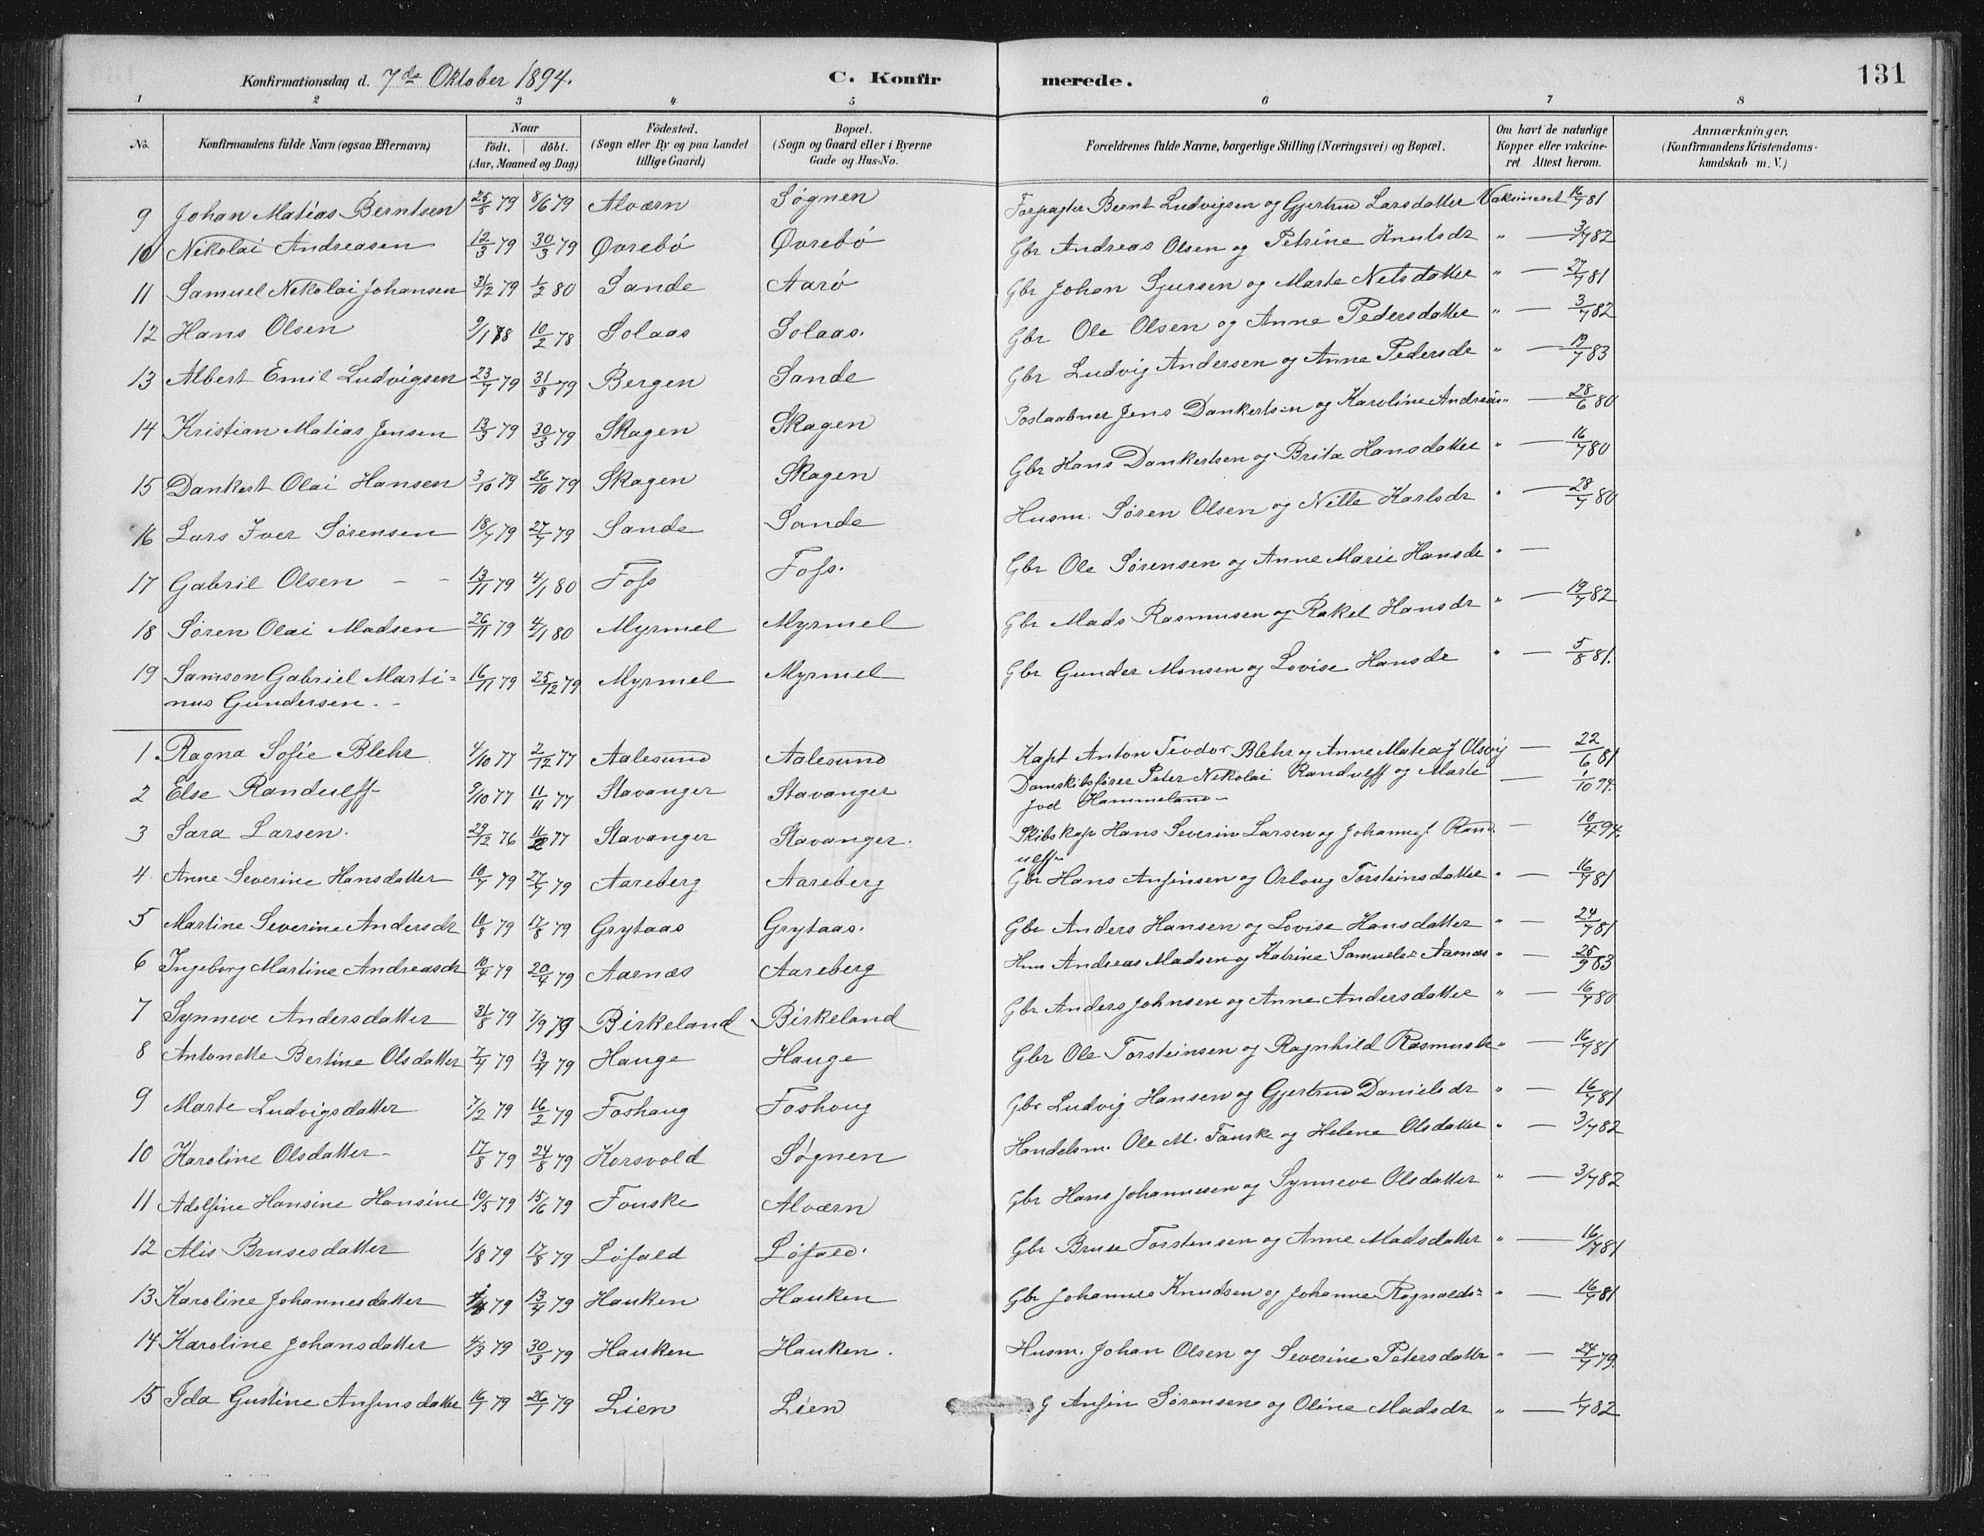 Konfirmationsdag d. 7de Oktober 1894. C. Konfirmerede. 131
1 2 3 4 5 6 7 8
No. Konfirmandens fulde Navn (ogsaa Efternavn) Naar födt. döbt. (Aar, Maaned og Dag) Födested. (Sogn eller By og paa Landet tillige Gaard) Bopæl. (Sogn og Gaard eller i Byerne Gade og Hus-No. Forældrenes fulde Navne, borgerlige Stilling (Næringsvei) og Bopæl. Om havt de naturlige Kopper eller vakcineret. Attest herom. Anmærkninger. (Konfirmandens Kristendomskundskab m. V.)
9 Johan Matias Berntsen 25/5 79 8/6 79 Alværn Søgnen Forpagter Bernt Ludvigsen og Gjertrud Larsdatter Vaksineret 16/7 81
10 Nikolai Andreasen 12/3 79 30/3 79 Øvrebö Øvrebö Gbr Andreas Olsen og Petrine Knutsdr " — 3/7 82
11 Samuel Nikolai Johansen 31/12 79 1/2 80 Sande Aarø Gbr Johan Sjursen og Marte Nelsdatter " — 27/7 81
12 Hans Olsen 9/1 78 10/2 78 Solaas Solaas. Gbr Ole Olsen og Anne Pedersdatter " — 3/7 82
13 Albert Emil Ludvigsen 23/7 79 31/8 79 Bergen Sande Gbr Ludvig Andersen og Anne Pedersde " — 19/7 83
14 Kristian Matias Jensen 13/3 79 30/3 79 Skagen Skagen Postaabner Jens Dankertsen og Karoline Andreas " — 28/6 80
15 Dankert Olai Hansen 3/10 79 26/10 79 Skagen Skagen Gbr Hans Dankertsen og Brita Hansdatter " — 16/7 80
16 Lars Iver Sørensen 18/7 79 27/7 79 Sande Sande Husm. Søren Olsen og Nille Karlsdr " — 28/7 80
17 Gabriel Olsen - - 13/11 79 4/1 80 Fofs Fofs. Gbr Ole Sørensen og Anne Marie Hansde " —
18 Søren Olai Madsen 26/11 79 4/1 80 Myrmel Myrmel Gbr Mads Rasmusen og Rakel Hansdr " — 19/7 82
19 Samson Gabriel Marti= 16/11 79 25/12 79 Myrmel Myrmel Gbr Gunder Monsen og Lovise Hansde " — 5/8 81.
nus Gundersen. -
1 Ragna Sofie Blehr 4/10 77 2/12 77 Aalesund Aalesund Kapt Anton Teodor Blehr og Anne Matea f Olsvig — 22/6 81
2 Else Randulff 9/10 77 11/11 77 Stavanger Stavanger Damskibsfører Peter Nikolai Randulff og Marte — 1/10 94.
fød Hammeland —
3 Sara Larsen. 29/12 76 11/2 77 Stavanger Stavanger. Skibskap Hans Severin Larsen og Johanne f. Rand — 10/4 94.
ulff
4 Anne Severine Hansdatter 10/7 79 27/7 79 Aareberg Aareberg Gbr Hans Anfinsen og Orloug Torsteinsdatter " — 16/7 81
5 Martine Severine Andersdr 10/8 79 17/8 79 Grytaas Grytaas. Gbr Anders Hansen og Lovise Hansdatter " — 24/7 81
6 Ingeborg Martine Andreasdr 10/4 79 20/4 79 Aarnæs Aareberg Hus Andreas Madsen og Katrine Samuelsr Aarnæs " — 25/9 83
7 Synneve Andersdatter 31/8 79 7/9 79 Birkeland Birkeland Gbr Anders Johnsen og Anne Andersdatter " — 16/7 80
8 Antonette Bertine Olsdatter 7/4 79 13/4 79 Hauge Hauge Gbr Ole Torsteinsen og Ragnhild Rasmusdr " — 16/7 81
9 Marte Ludvigsdatter 7/2 79 16/2 79 Foshaug Foshoug Gbr Ludvig Hansen og Gjertrud Danielsdr " — 16/7 81
10 Karoline Olsdatter - 17/8 79 24/8 79 Korsvold Søgnen Handelsm. Ole M. Fauske og Helene Olsdatter " — 3/7 82
11 Adolfine Hansine Hansine 10/5 79 15/6 79 Fouske Alværn Gbr Hans Johannesen og Synneve Olsdatter " — 3/7 82
12 Alis Brusesdatter 1/8 79 17/8 79 Løfald Løfald. Gbr Bruse Torstensen og Anne Madsdatter " — 16/7 81
13 Karoline Johannesdatter 79 13/4 79 Hauken Hauken Gbr Johannes Knudsen og Johanne Rognalds= " — 16/7 81
14 Karoline Johansdatter 4/3 79 30/3 79 Hauken Hauken. Husm. Johan Olsen og Severine Petersdatter " — 24/7 79.
15 Ida Gustine Anfinsdatter 16/7 79 26/7 79 Lien Lien G Anfin Sørensen og Oline Madsdr " — 1/7 82